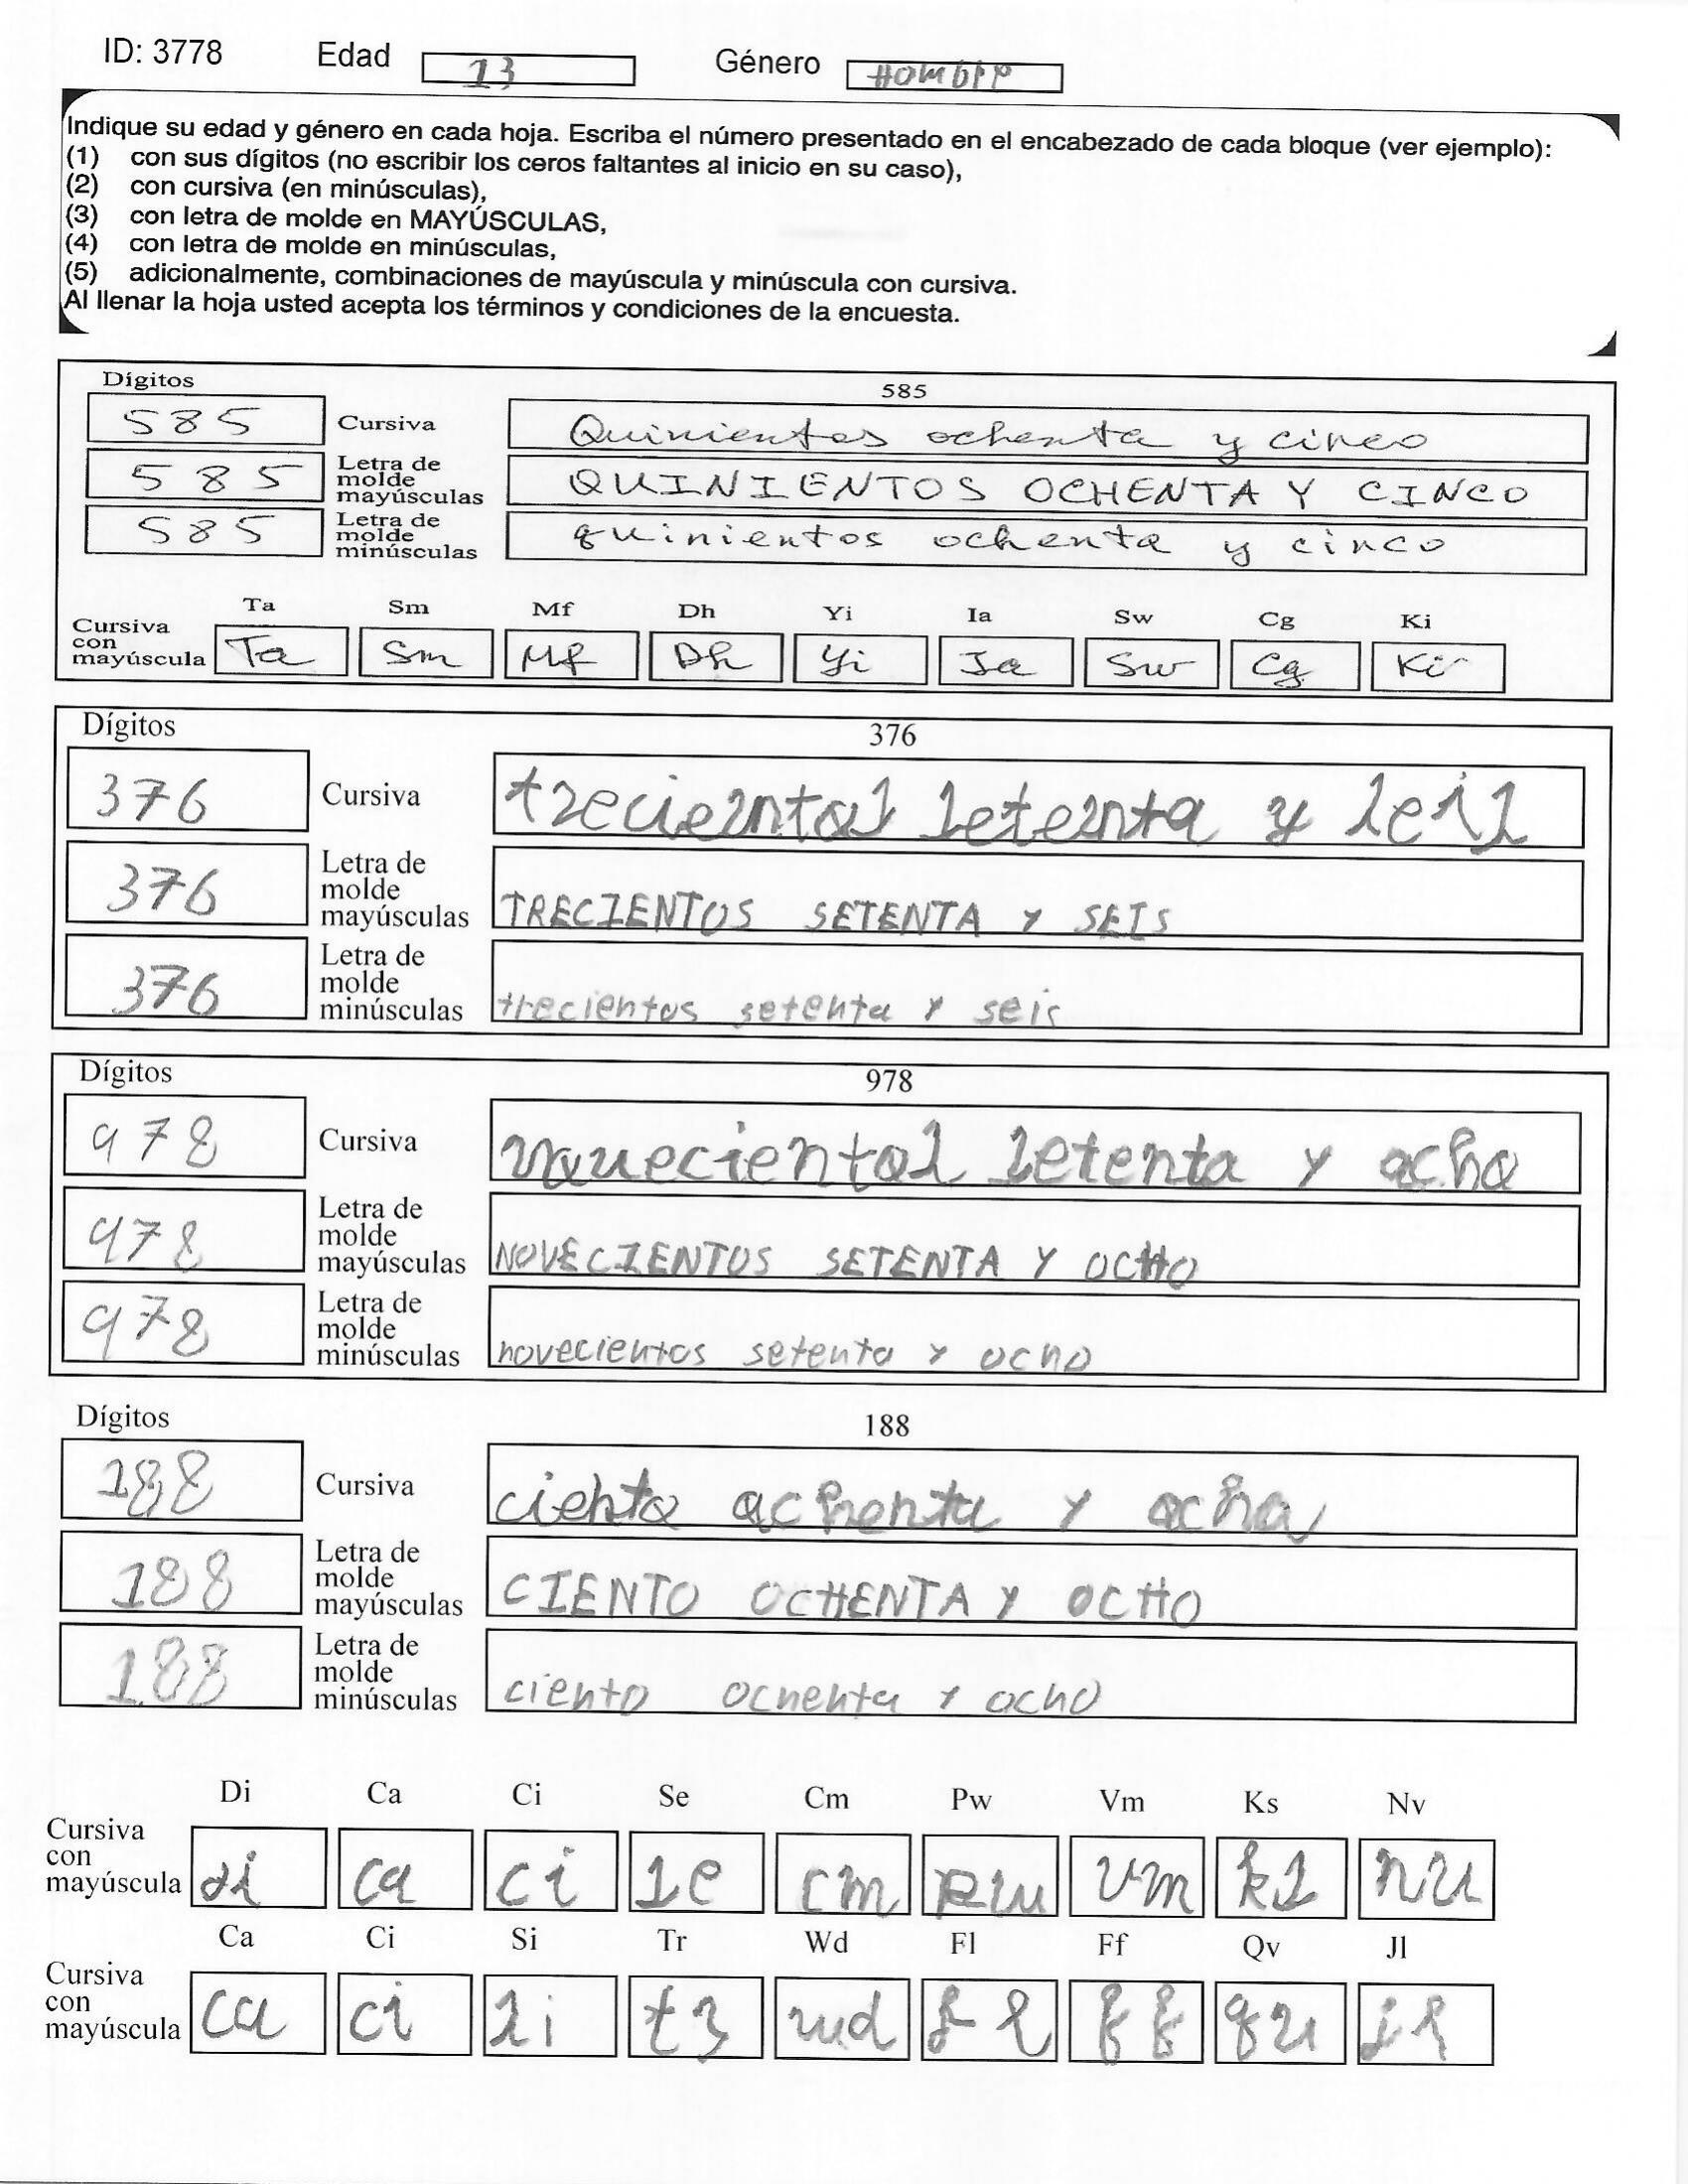 ID: 3778 Edad 13 Género HOMbre
Indique su edad y género en cada hoja. Escriba el número presentado en el encabezado de cada bloque (ver ejemplo):
(1) con sus dígitos (no escribir los ceros faltantes al inicio en su caso),
(2) con cursiva (en minúsculas),
(3) con letra de molde en MAYÚSCULAS,
(4) con letra de molde en minúsculas,
(5) adicionalmente, combinaciones de mayúscula y minúscula con cursiva.
Al llenar la hoja usted acepta los términos y condiciones de la encuesta.
Dígitos 585
585 Cursiva Quinientos ochenta y cinco
585 Letra de molde mayúsculas QUINIENTOS OCHENTA Y CINCO
585 Letra de molde minúsculas quinientos ochenta y cinco
Ta Sm Mf Dh Yi Ia Sw Cg Ki
Cursiva con mayúscula Ta Sm Mf Dh Yi Ia Sw Cg Ki
Dígitos 376
376 Cursiva trecientos setenta y seis
376 Letra de molde mayúsculas TRECIENTOS SETENTA Y SEIS
376 Letra de molde minúsculas trecientos setenta y seis
Dígitos 978
978 Cursiva novecientos setenta y ocho
978 Letra de molde mayúsculas NOVECIENTOS SETENTA Y OCHO
978 Letra de molde minúsculas novecientos setenta y ocho
Dígitos 188
188 Cursiva ciento ochenta y ocho
188 Letra de molde mayúsculas CIENTO OCHENTA Y OCHO
188 Letra de molde minúsculas ciento ochenta y ocho
Di Ca Ci Se Cm Pw Vm Ks Nv
Cursiva con mayúscula di ca ci se cm pw vm ks nv
Ca Ci Si Tr Wd Fl Ff Qv Jl
Cursiva con mayúscula ca ci si tr wd fl ff qv jl